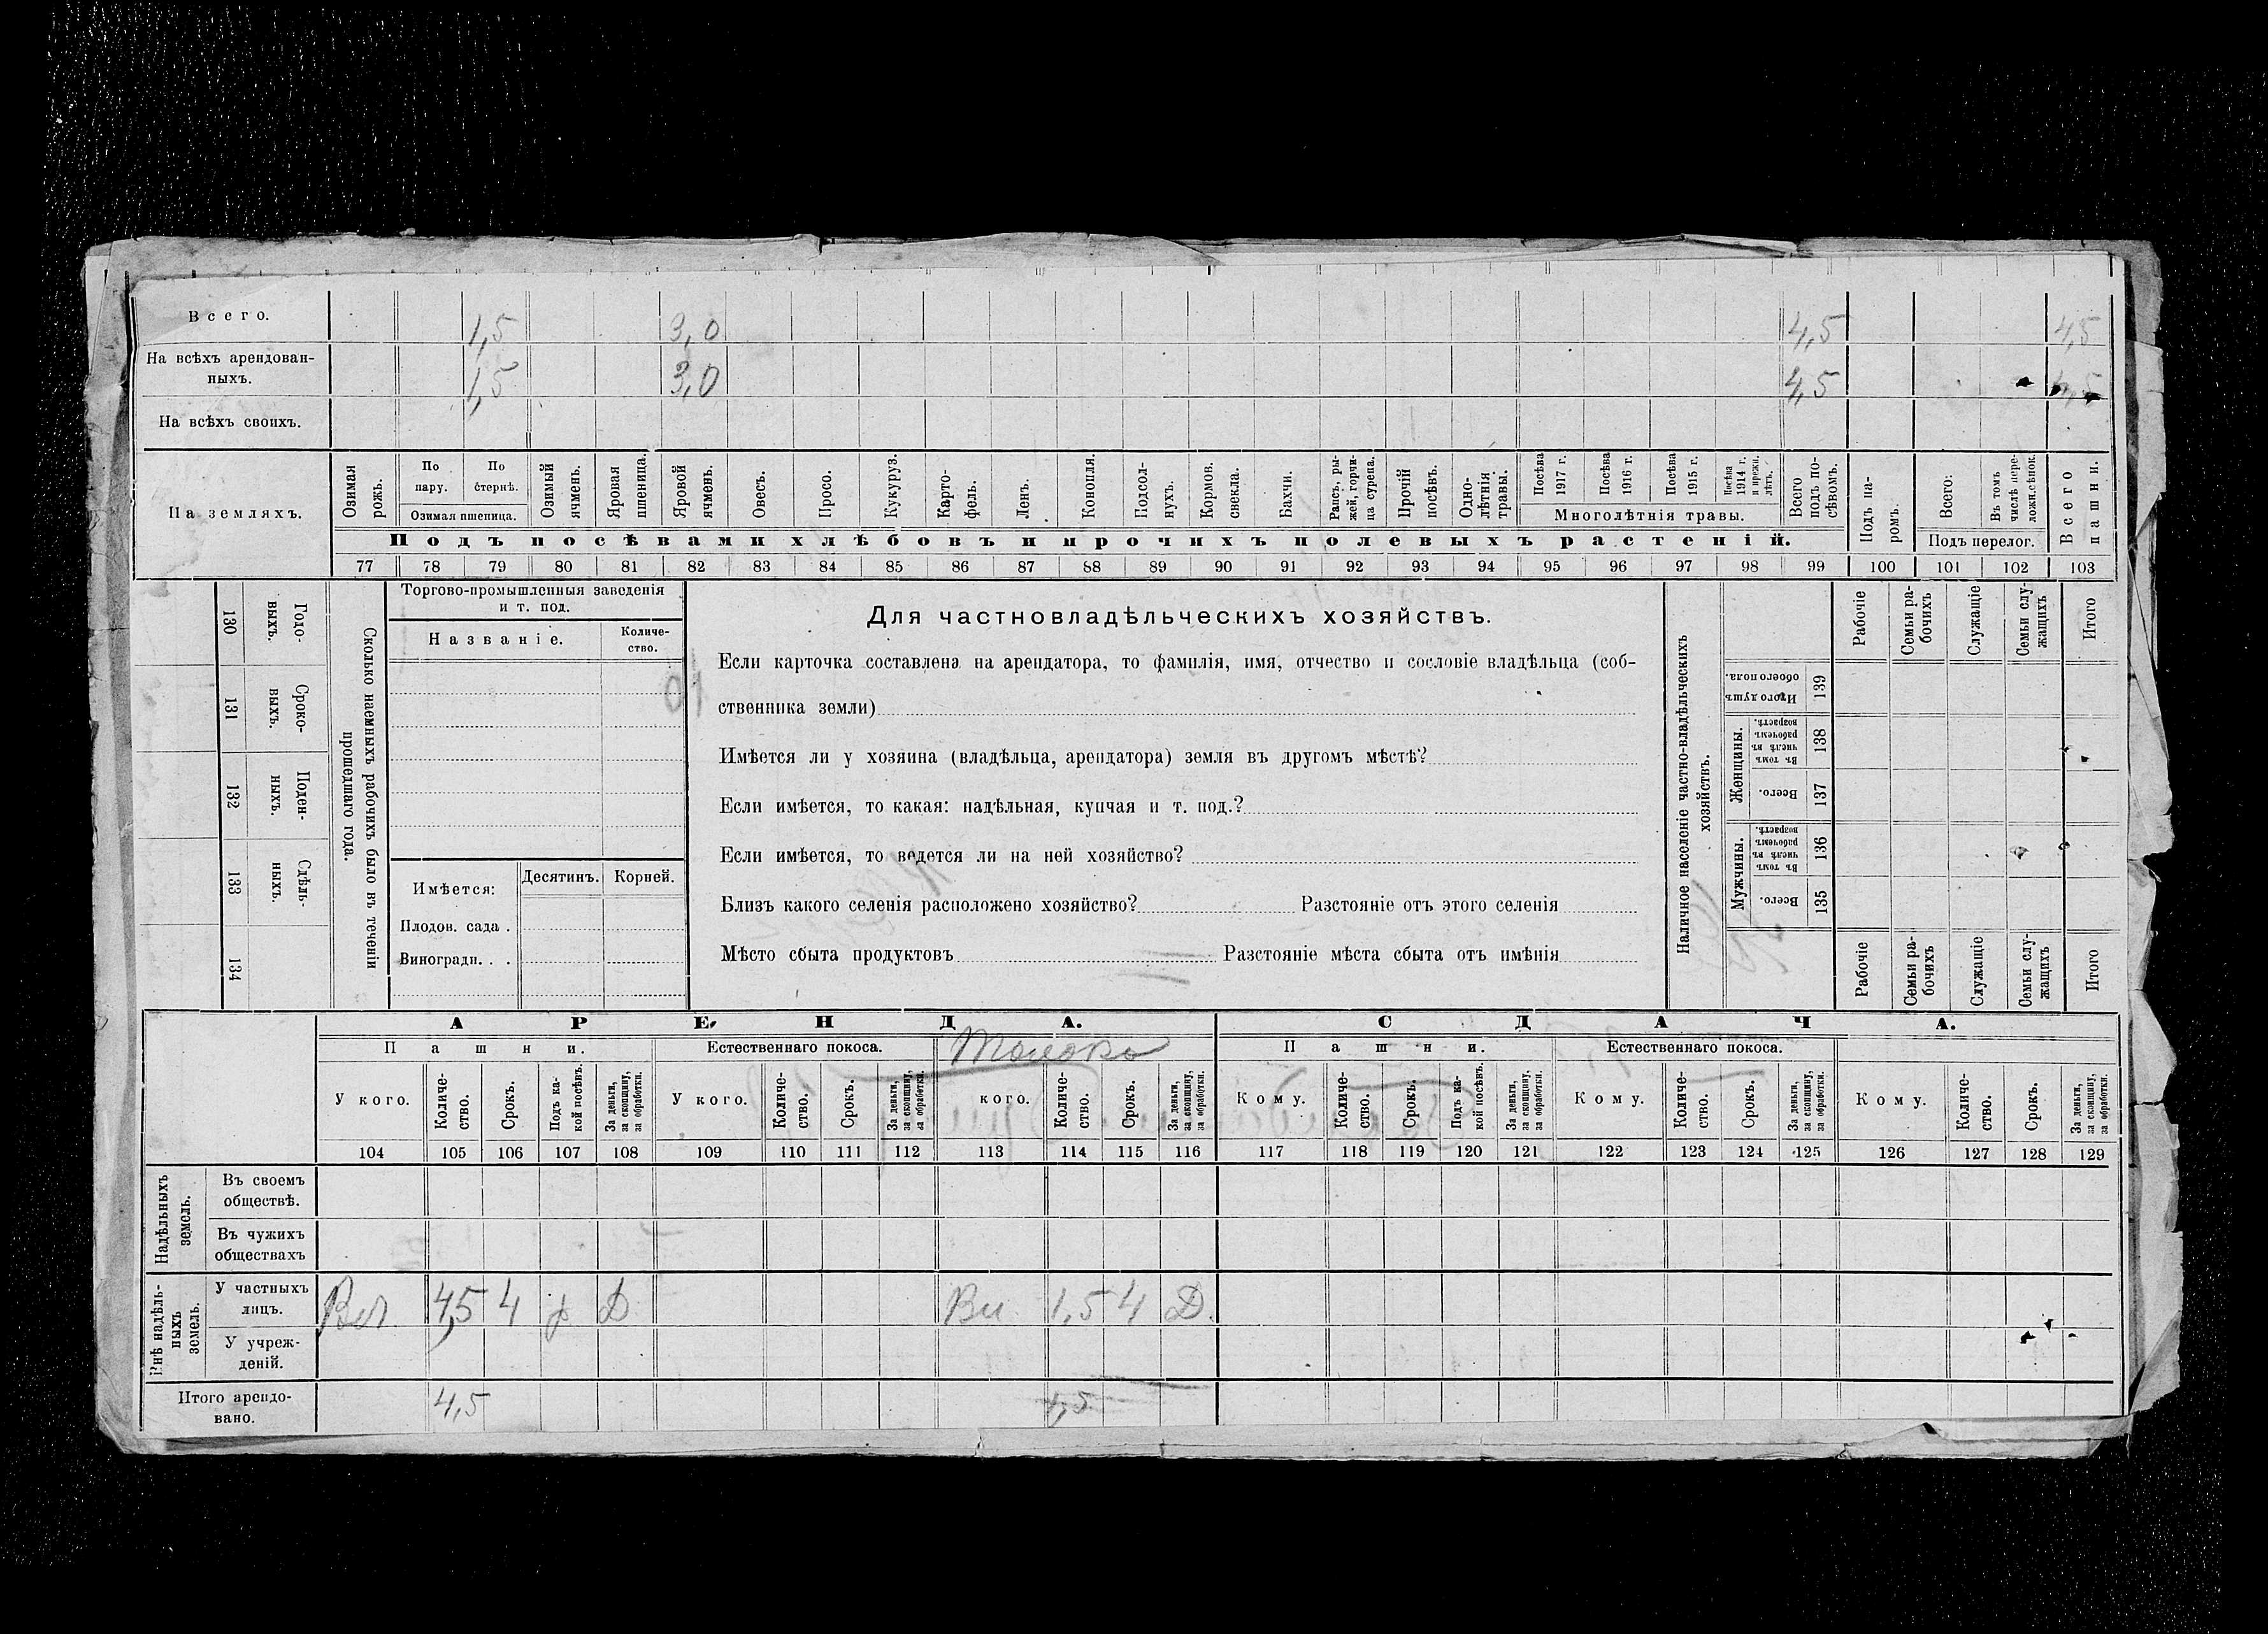 Всего. 1,5 3,0 4,5 4,5
На всѣхъ арендован-
ныхъ. 1,5 3,0 4,5 4,5
На всѣхъ своихъ.
На земляхъ.
Озимая рожь.
По пару.
По стернѣ.
Озимая пшеница.
Озимый ячмень.
Яровая пшеница.
Яровой ячмень.
Овесъ.
Просо.
Кукуруз.
Карто-
фель.
Ленъ.
Конопля.
Подсол-
нухъ.
Кормов. свекла.
Бахчи.
Рапсъ, ры-
жей, горчи-
ца сурепа.
Прочій посѣвъ.
Одно-
лѣтнія травы.
Посѣва 1917 г.
Посѣва 1916 г.
Посѣва 1915 г.
Посѣва 1914 г. и прежн. лѣтъ.
Многолѣтнія травы.
Всего подъ по-
сѣвомъ.
Подъ па-
ромъ.
Всего:
Въ томъ числѣ пере-
ложн. сѣнок.
Подъ перелог.
Всего пашни.
Подъ посѣвами хлѣбовъ и прочихъ полевыхъ растеній.
77 78 79 80 81 82 83 84 85 86 87 88 89 90 91 92 93 94 95 96 97 98 99 100 101 102 103
130 Годо-
выхъ.
131 Сроко-
выхъ.
132 Поден-
ныхъ.
133 Сдѣль-
ныхъ.
134
Сколько наемныхъ рабочихъ было въ теченіи
прошедшаго года.
Торгово-промышленныя заведенія
и т. под.
Названіе.
Количе-
ство.
Имѣется:
Десятинъ.
Корней.
Плодов. сада .
Виноградн. . .
Для частновладѣльческихъ хозяйствъ.
Если карточка составлена на арендатора, то фамилія, имя, отчество и сословіе владѣльца (соб-
ственника земли)
Имѣется ли у хозяина (владѣльца, арендатора) земля въ другомъ мѣстѣ?
Если имѣется, то какая: надѣльная, купчая и т. под.?
Если имѣется, то ведется ли на ней хозяйство?
Близъ какого селенія расположено хозяйство? Разстояніе отъ этого селенія
Мѣсто сбыта продуктовъ Разстояніе мѣста сбыта отъ имѣнія
Наличное населеніе частно-владѣльческихъ
хозяйствъ.
Рабочіе
Семьи ра-
бочихъ
Служащіе
Семьи слу-
жащихъ
Итого
Итого душъ обоего пола. 139
Женщины.
Въ томъ числѣ въ рабочемъ возрастѣ. 138
Всего. 137
Мужчины.
Въ томъ числѣ въ рабочемъ возрастѣ. 136
Всего. 135
Рабочіе
Семьи ра-
бочихъ
Служащіе
Семьи слу-
жащихъ
Итого
АРЕНДА. СДАЧА.
Пашни. Естественнаго покоса. Толока Пашни. Естественнаго покоса.
У кого.
Количе-
ство.
Срокъ.
Подъ ка-
кой посѣвъ.
За деньги,
за скопщину,
за обработки.
У кого.
Количе-
ство.
Срокъ.
За деньги,
за скопщину,
за обработки.
кого.
Количе-
ство.
Срокъ.
За деньги,
за скопщину,
за обработки.
Кому.
Количе-
ство.
Срокъ.
Подъ ка-
кой посѣвъ.
За деньги,
за скопщину,
за обработки.
Кому.
Количе-
ство.
Срокъ.
За деньги,
за скопщину,
за обработки.
Кому.
Количе-
ство.
Срокъ.
За деньги,
за скопщину,
за обработки.
104 105 106 107 108 109 110 111 112 113 114 115 116 117 118 119 120 121 122 123 124 125 126 127 128 129
Надѣльныхъ
земель.
Въ своемъ
обществѣ.
Въ чужихъ
обществахъ
Внѣ надѣль-
ныхъ
земель.
У частныхъ
лицъ. 4,5 4 Д 1,5 4 Д.
У учреж-
деній.
Итого арендо-
вано. 4,5 1,5